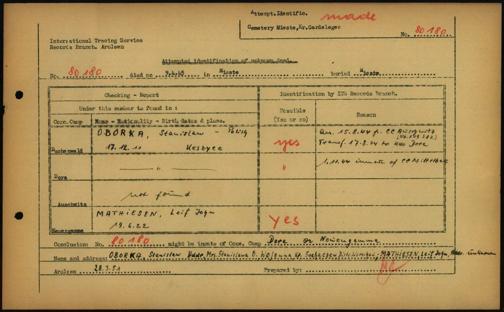 Attempt. Identific. made
Cemetery Mieste, Kr. Gardelegen
International Tracing Service
Records Branch, Arolsen
No. 80180
Attempted identification of unknown dead.
No. 80180 died on 9.4.45 in Mieste buried Mieste
Checking - Report
Identification by ITS Records Branch.
Under this number to found in :
Possible (Yes or no)
Reason
Conc. Camp Name - Nationality - Birth dates & place.
OBORKA, Stanislaw - Polish
Buchenwald 17.12.11
yes
Arr. 15.8.44 f. CC Auschwitz
Transf. 17.8.44 to Kdo Dora
Dora
"
1.11.44 inmate of CC Mittelbau
Auschwitz not found
MATHIESEN, Leif
Neuengamme 19.6.22
Yes
Conclusion No. 80180 might be inmate of Conc. Camp Dora or Neuengamme
Name and address: OBORKA, Stanislaw MATHIESEN, Leif unknown
Arolsen 28.3.51 Prepared by: